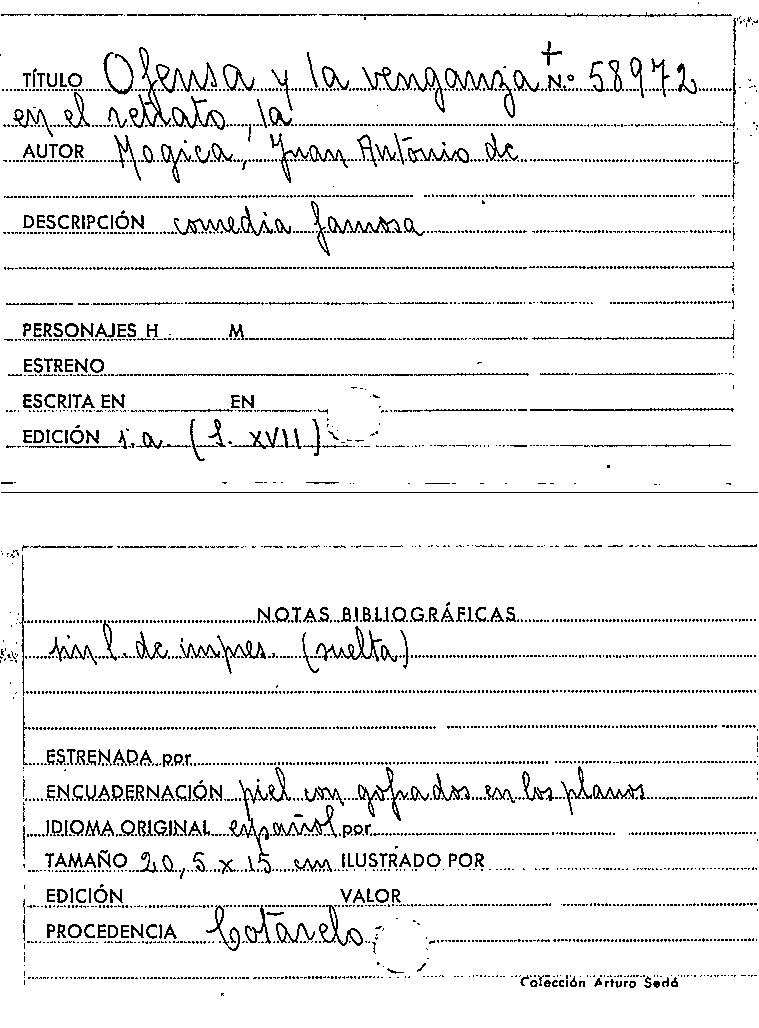 TÍTULO Ofensa y la venganza + N.º 58972
en el retrato, la
AUTOR Mogica, Juan Antonio de
DESCRIPCIÓN comedia famosa
PERSONAJES H M
ESTRENO
ESCRITA EN EN
EDICIÓN s.a. (S. XVII)
NOTAS BIBLIOGRÁFICAS
sin l. de impres. (suelta)
ESTRENADA por
ENCUADERNACIÓN piel con gofrados en los planos
IDIOMA ORIGINAL español por
TAMAÑO 20,5 x 15 cm ILUSTRADO POR
EDICIÓN VALOR
PROCEDENCIA Cotarelo
Colección Arturo Sedó